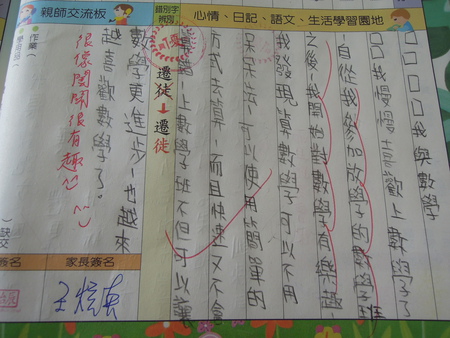 心情、日記、語文、生活學習園地
我與數學
我慢慢喜歡上數學了
自從我參加放學的數學班
之後，我開始對數學有興趣，
我發現算數學可以不用
呆呆法，可以使用簡單的
方式去算，而且快速又不會
上數學班不但可以讓
錯別字
優
遷徒→遷徙
親師交流板
數學更進步，也越來
越喜歡數學了。
很有趣
作業
家長簽名
簽名